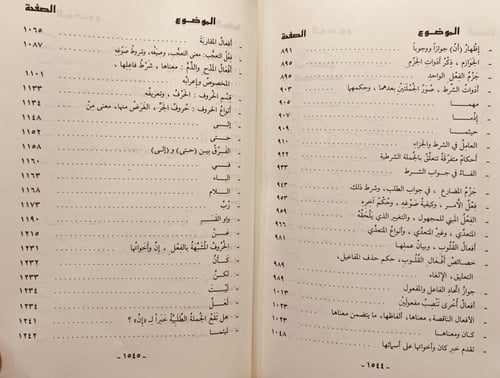 الموضوع الصفحة
إظهارُ (أن) جوازاً ووجوباً ٨٩١
الجَوَازِم ، ذِكْرُ أدوات الجَزْم ٨٩٥
جَزْمُ الفِعْل الواحد ٨٩٥
أدَوَاتُ الشرط ، صُوَر الجُمْلَتَيْن بعدهما ، وحكمهم ٩٠٣
مهمـا ٩٠٥
إذْمـا ٩٠٧
حيثمـا
العامِلُ في الشرط والجَزَاء
أحكام متفرِّقَة تتعلَّقُ بالجملة الشرطية ٩٢٢
الفـاء في جواب الشـرط ٩٣٣
جَزْمُ المضارع ، في جواب الطلب، وشرط ذلك ٩٤٣
فعلُ الأمـر ، وكيفيَّة صَوْغه ، وحُكْمُ آخِرِه ٩٥٣
الفعلُ المَبْني للمجهول ، والتغيير الذي يَلْحَقُه
المتعدِّي ، وغيرُ المتعدِّي ، وأنواعُ المتعدِّي ٩٦٦
أفعالُ القُلُوب، وبيانُ عملهـا ٩٨١
خصائصُ أفْعَال القُلُوب، حكم حذف المفاعيل،
التعليق، الإلغاء ٩٨٩
جوازُ اتحادِ الفاعلِ والمفعول ٩٨٩
أفعالٌ أُخرى تَنْصِبُ مفعولَيْن ١٠١٣
الأفعال الناقصة، معناها، ألفاظها، ما يتضمن معناها ١٠٢٣
كان ومعناها ١٠٢٣
تقدم خبر كان وأخواتها على أسمائها ١٠٤٨
- ١٥٤٤ -
الموضوع الصفحة
أفعالُ المقاربَة ١٠٦٥
فِعْلُ التعجُّب: معنى التعجُّب، وصيغُه، وشروط صَوْغِه ١٠٨٧
أفعالُ المَدْح والذَّم : معناها ، شَرْطُ فاعلِها ،
المخصُوصُ وإعرابُه ١١٠١
قِسْم الحُرُوف : الحَرْفُ ، وتعريفُه ١١٣٣
أنواعُ الحُروف : حُروفُ الجَرِّ ، الغَرَضُ منها، معنى مِنْ ١١٣٤
إلـى ١١٤٨
حتـى ١١٥٢
الفَرْقُ بين (حتـى) و(إلـى) ١١٥٨
فـي ١١٦٠
البـاء ١١٦٣
الـلام ١١٦٨
رُبَّ ١١٧٣
واو القسَـم ١١٩٠
عَـنْ ١٢١٥
الحُرُوفُ المُشَبَّهَةُ بالفِعْل ، إنَّ وأخواتُها ١٢٣١
كَـأنَّ ١٢٣٢
لكـنَّ ١٢٣٣
لَيْـتَ ١٢٣٤
لَعَـلَّ ١٢٣٤
هل تَقَعُ الجملةُ الطَّلَبِيَّةُ خَبَراً لـ «إن» ؟ ١٢٤١
ليتمـا ١٢٤٢
- ١٥٤٥ -